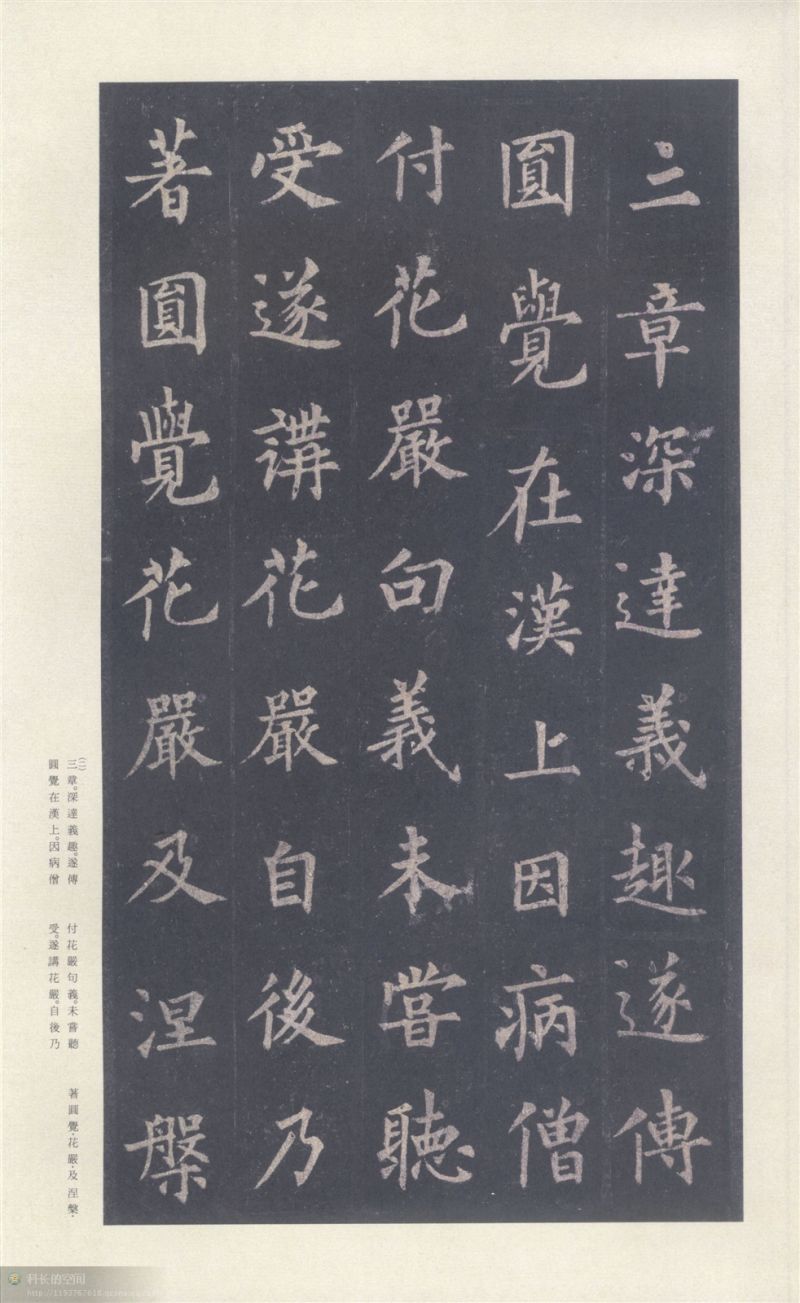 三章深達義趣遂傳
圓覺在漢上因病僧
付花嚴句義未嘗聽
受遂講花嚴自後乃
著圓覺花嚴及涅槃
(二)
三章。深達義趣。遂傳
圓覺在漢上。因病僧
付花嚴句義。未嘗聽
受。遂講花嚴。自後乃
著圓覺·花嚴·及涅槃·
科长的空间